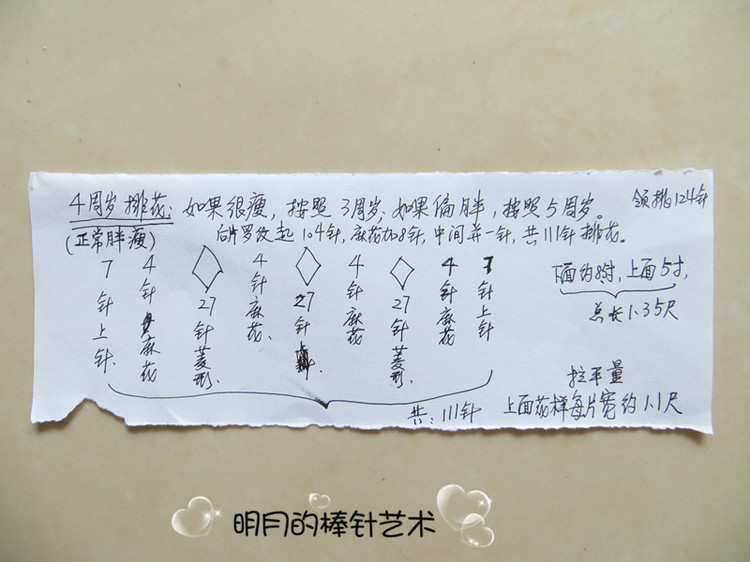 4周岁排花：如果很瘦，按照3周岁；如果偏胖，按照5周岁。
领排124针
(正常胖瘦)
片罗纹起104针，麻花加8针，中间并一针，共111针排花。
7针上针
4针麻花
27针菱形
4针麻花
27针
4针麻花
27针菱形
4针麻花
7针上针
共：111针
下面约8寸，上面5寸，
总长1.35尺
拉平量
上面花样每片宽约1.1尺
明月的棒针艺术